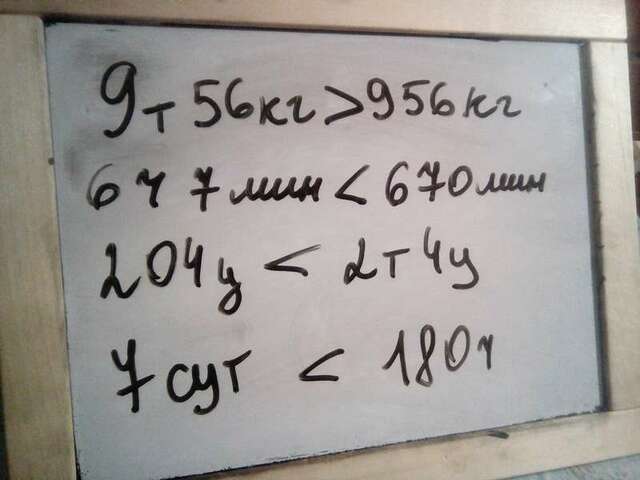 9т 56кг > 956кг
6ч 7мин < 670мин
204ц < 2т 4ц
7сут < 180ч